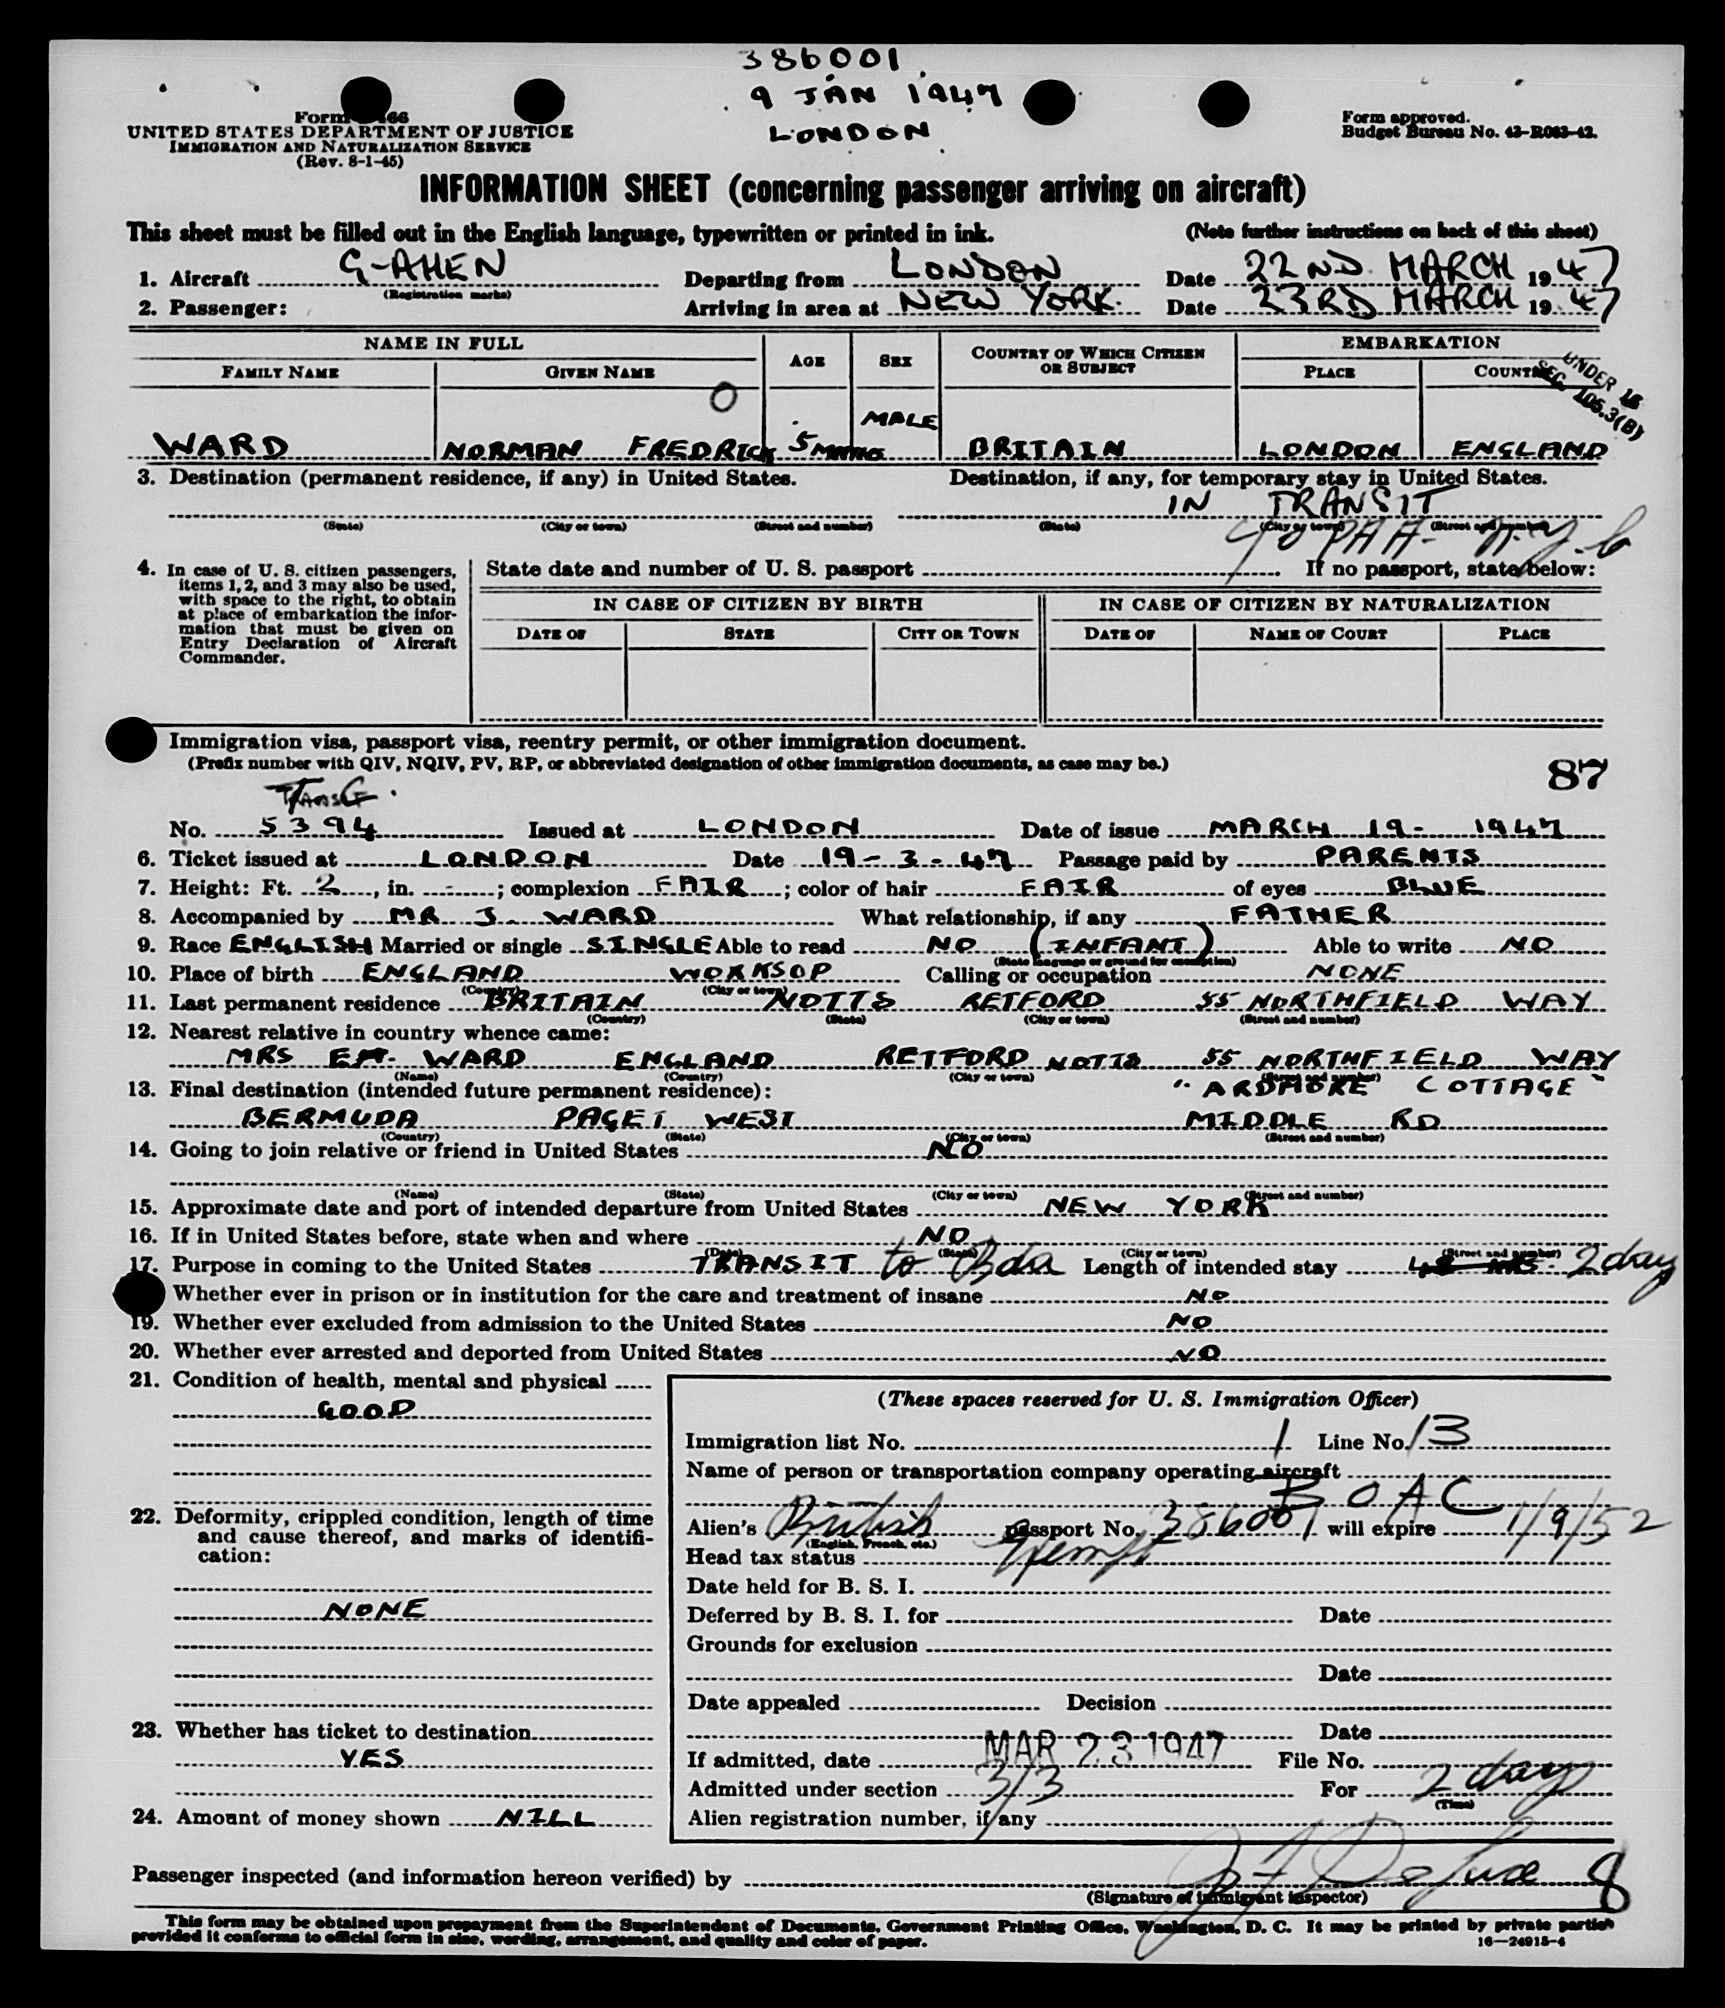 386001
9 JAN 1947
LONDON
Form 466
UNITED STATES DEPARTMENT OF JUSTICE
IMMIGRATION AND NATURALIZATION SERVICE
(Rev. 8-1-45)
Form approved.
Budget Bureau No. 43-R063-42.
INFORMATION SHEET (concerning passenger arriving on aircraft)
This sheet must be filled out in the English language, typewritten or printed in ink. (Note further instructions on back of this sheet)
1. Aircraft G-AHEN Departing from LONDON Date 22ND MARCH 1947
(Registration marks)
2. Passenger: Arriving in area at NEW YORK. Date 23RD MARCH 1947
NAME IN FULL AGE SEX COUNTRY OF WHICH CITIZEN OR SUBJECT EMBARKATION
FAMILY NAME GIVEN NAME PLACE COUNTRY
UNDER 16
SEC. 105.3(B)
O
WARD NORMAN FREDRICK 5 MNTHS MALE BRITAIN LONDON ENGLAND
3. Destination (permanent residence, if any) in United States. Destination, if any, for temporary stay in United States.
IN TRANSIT
(State) (City or town) (Street and number) (State) (City or town) (Street and number)
c/o PAA - N.Y.C
4. In case of U. S. citizen passengers, items 1, 2, and 3 may also be used, with space to the right, to obtain at place of embarkation the information that must be given on Entry Declaration of Aircraft Commander.
State date and number of U. S. passport If no passport, state below:
IN CASE OF CITIZEN BY BIRTH IN CASE OF CITIZEN BY NATURALIZATION
DATE OF STATE CITY OR TOWN DATE OF NAME OF COURT PLACE
Immigration visa, passport visa, reentry permit, or other immigration document.
(Prefix number with QIV, NQIV, PV, RP, or abbreviated designation of other immigration documents, as case may be.)
87
No. 5394 Issued at LONDON Date of issue MARCH 19 - 1947
6. Ticket issued at LONDON Date 19-3-47 Passage paid by PARENTS
7. Height: Ft. 2, in. -; complexion FAIR; color of hair FAIR of eyes BLUE
8. Accompanied by MR J. WARD What relationship, if any FATHER
9. Race ENGLISH Married or single SINGLE Able to read NO (INFANT) Able to write NO
(State language or ground for exemption)
10. Place of birth ENGLAND WORKSOP Calling or occupation NONE
(Country) (City or town)
11. Last permanent residence BRITAIN NOTTS RETFORD 55 NORTHFIELD WAY
(Country) (State) (City or town) (Street and number)
12. Nearest relative in country whence came:
MRS E.H. WARD ENGLAND RETFORD NOTTS 55 NORTHFIELD WAY
(Name) (Country) (City or town) (Street and number)
13. Final destination (intended future permanent residence): "ARDMORE COTTAGE"
BERMUDA PAGET WEST MIDDLE RD
(Country) (State) (City or town) (Street and number)
14. Going to join relative or friend in United States NO
(Name) (State) (City or town) (Street and number)
15. Approximate date and port of intended departure from United States NEW YORK
16. If in United States before, state when and where NO
(Date) (State) (City or town) (Street and number)
17. Purpose in coming to the United States TRANSIT to Bda Length of intended stay 48 HRS. 2 day
Whether ever in prison or in institution for the care and treatment of insane NO
19. Whether ever excluded from admission to the United States NO
20. Whether ever arrested and deported from United States NO
21. Condition of health, mental and physical
GOOD
22. Deformity, crippled condition, length of time and cause thereof, and marks of identification:
NONE
23. Whether has ticket to destination
YES
24. Amount of money shown NILL
(These spaces reserved for U. S. Immigration Officer)
Immigration list No. 1 Line No. 13
Name of person or transportation company operating aircraft
BOAC
Alien's British passport No. 386001 will expire 1/9/52
(English, French, etc.)
Head tax status Exempt
Date held for B. S. I.
Deferred by B. S. I. for Date
Grounds for exclusion
Date
Date appealed Decision
Date
If admitted, date MAR 23 1947 File No.
Admitted under section 3/3 For 2 day
(Time)
Alien registration number, if any
Passenger inspected (and information hereon verified) by 8
(Signature of immigrant inspector)
This form may be obtained upon prepayment from the Superintendent of Documents, Government Printing Office, Washington, D. C. It may be printed by private parties
provided it conforms to official form in size, wording, arrangement, and quality and color of paper.
16—24915-4